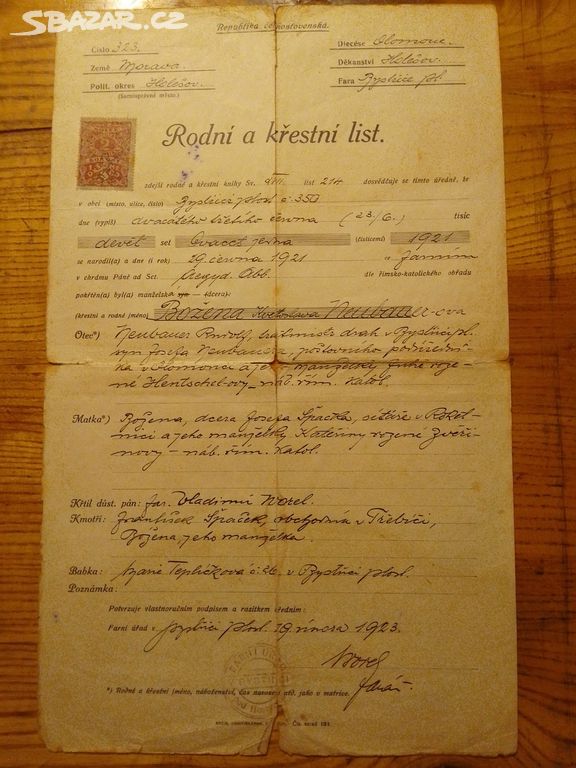 SBAZAR.CZ
Republika československá.
Číslo 323.
Diecése Olomouc.
Země Morava
Děkanství Holešov.
Polit. okres Holešov.
Fara Bystřice p/H.
(Samosprávné město.)
Rodní a křestní list.
zdejší rodné a křestní knihy Sv. VIII. list 214 dosvědčuje se tímto úředně, že
v obci (místo, ulice, číslo) Bystřice p/Host. č. 350
dne (vypiš) dvacátého třetího června (23./6.) tisíc
devět set dvacet jedna (číslicemi) 1921
se narodil(a) a dne (i rok) 29. června 1921 v farním
v chrámu Páně ad Sct. Aegyd. Abb. dle římsko-katolického obřadu
pokřtěn(a) byl(a) manželský syn — (dcera)
(křestní a rodné jméno) Božena Květoslava Neubauerova
Otec*) Neubauer Rudolf, drah v Bystřici p/H.
syn Josefa Neubauera, poštovního podúředníka
v Olomouci a jeho manželky rozené
Hentschel-ovy, náb. řím. katol.
Matka*) Božena, dcera Josefa Špačka, cestáře v Roketnici
a jeho manželky Kateřiny rozené Zvěřinovy
— náb. řím. katol.
Křtil důst. pán: far. Vladimír Worel.
Kmotři: František Špaček, obchodník v Třebíči,
Božena, jeho manželka.
Babka: Marie Tepličkova č. 26, v Bystřici p/Host.
Poznámka:
Potvrzuje vlastnoručním podpisem a razítkem úředním:
Farní úřad v Bystřici p/Host. 19. února 1923.
Worel
farář
*) Rodné a křestní jméno, náboženství, čas narození atd. jako v matrice.